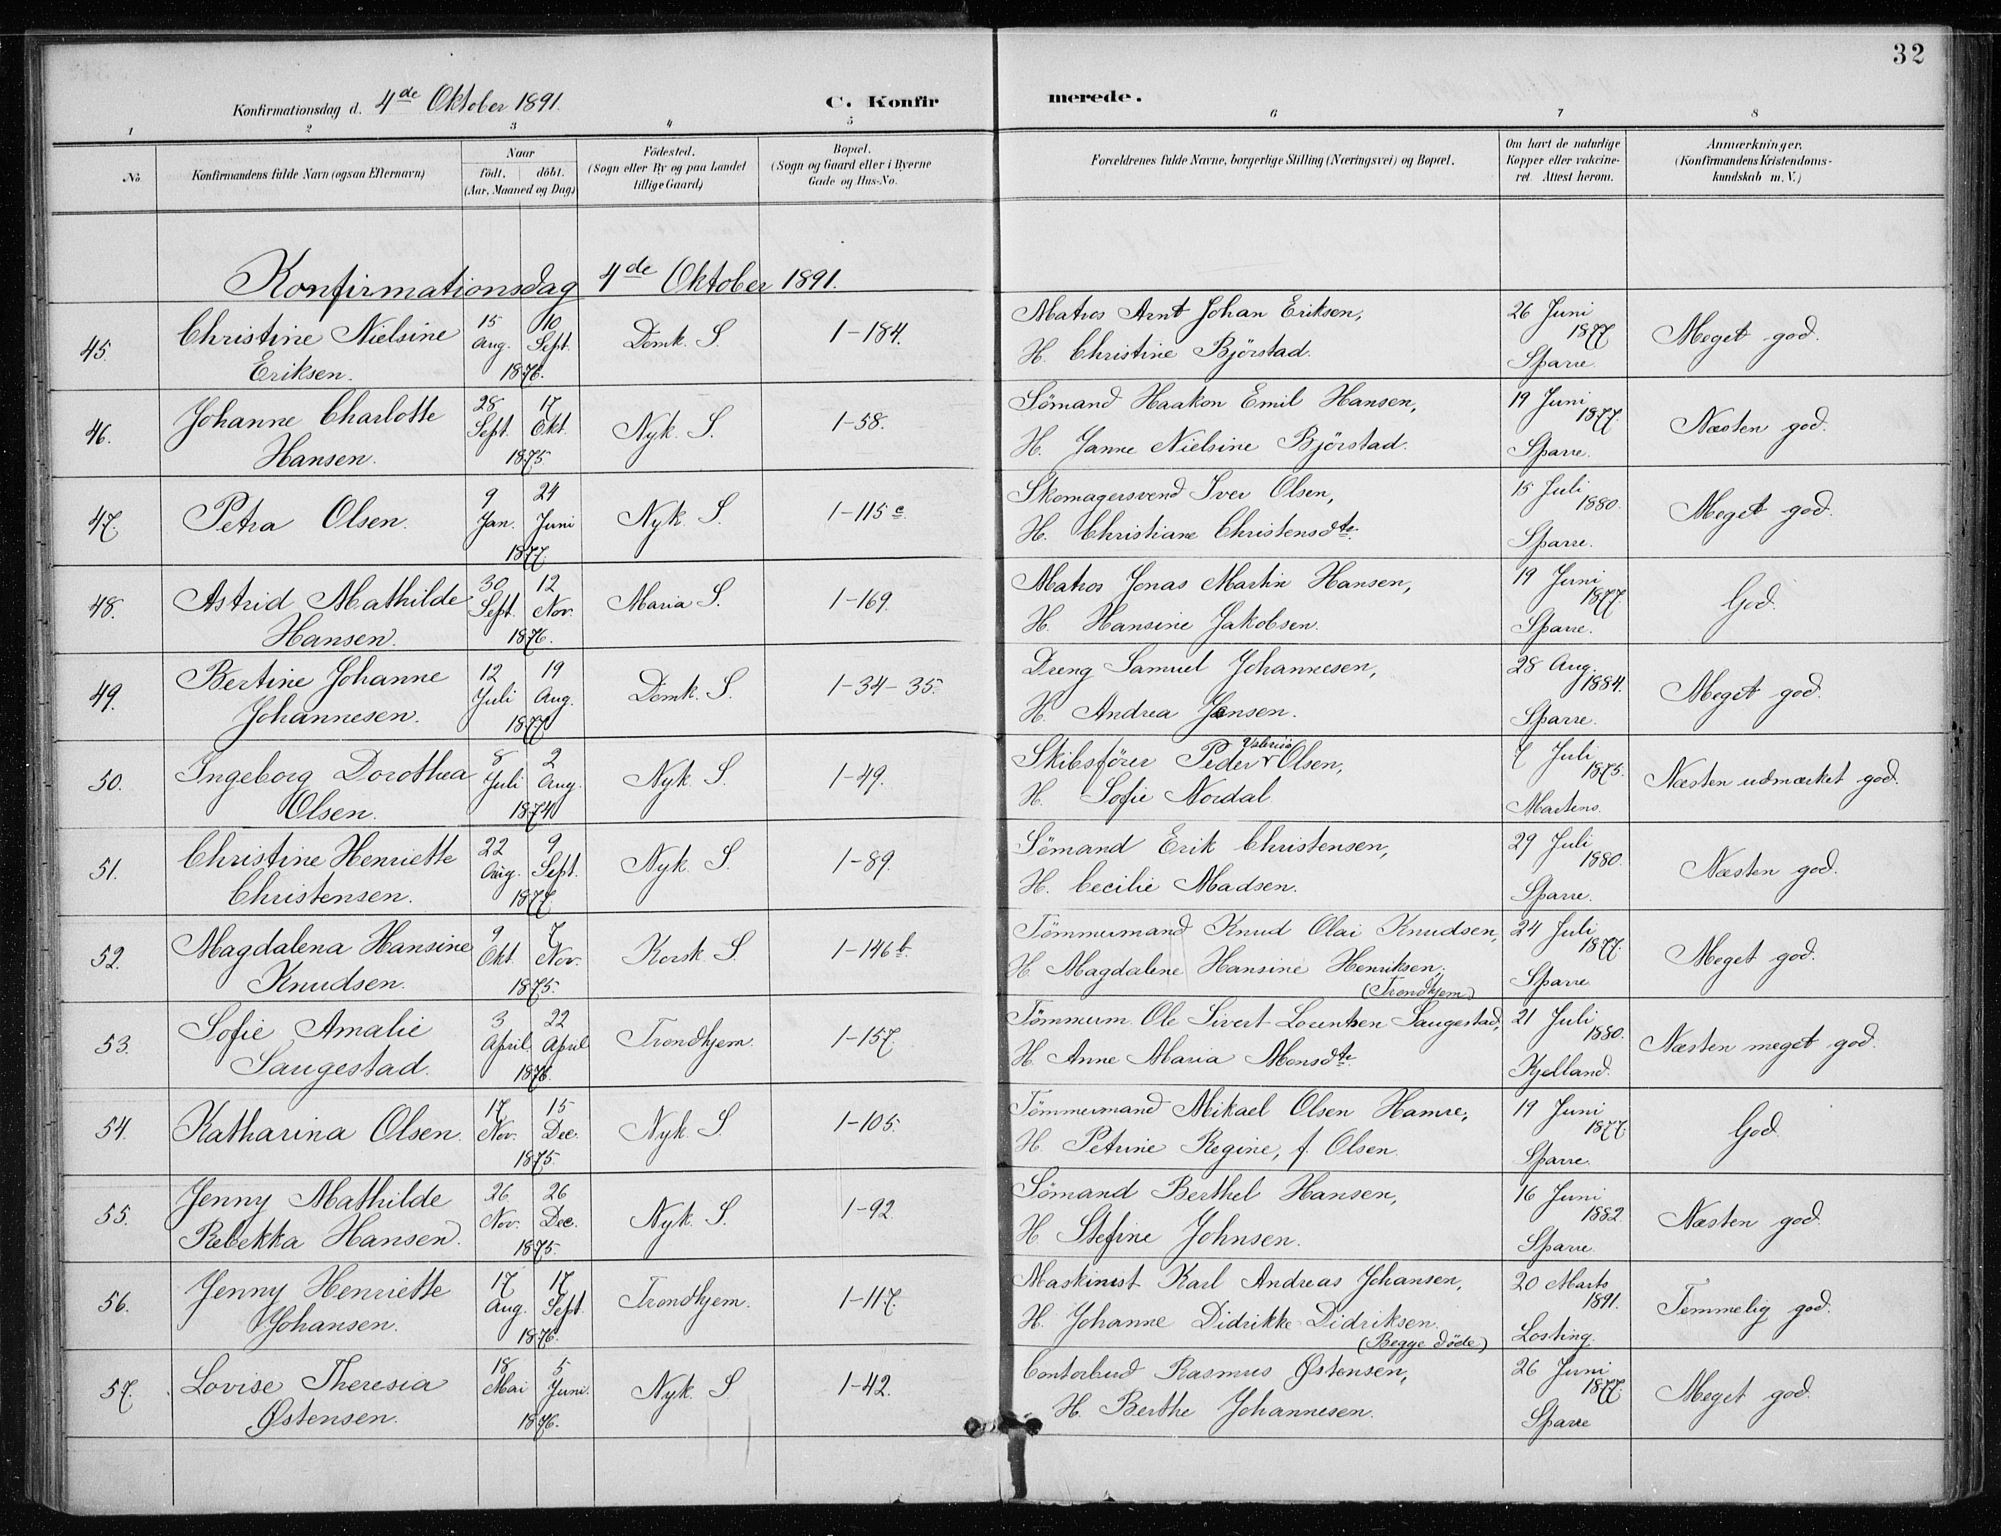 32
Konfirmationsdag d. 4de Oktober 1891.
C. Konfirmerede.
1 2 3 4 5 6 7 8
No.
Konfirmandens fulde Navn (ogsaa Efternavn)
Naar
födt. döbt.
(Aar, Maaned og Dag)
Födested.
(Sogn eller By og paa Landet
tillige Gaard)
Bopæl.
(Sogn og Gaard eller i Byerne
Gade og Hus-No.
Forældrenes fulde Navne, borgerlige Stilling (Næringsvei) og Bopæl.
Om havt de naturlige
Kopper eller vakcine-
ret. Attest herom.
Anmærkninger.
(Konfirmandens Kristendoms-
kundskab m. V.)
Konfirmationsdag 4de Oktober 1891.
45. Christine Nielsine Eriksen. 15 Aug. 10 Sept. 1876. Domk. S. 1-184. Matros Arnt Johan Eriksen, H. Christine Björstad. 26 Juni 1877 Sparre. Meget god.
46. Johanne Charlotte Hansen. 28 Sept. 17 Okt. 1875. Nyk. S. 1-58. Sömand Haakon Emil Hansen, H. Janne Nielsine Björstad. 19 Juni 1877. Sparre. Næsten god.
47. Petra Olsen. 9 Jan. 24 Juni 1877 Nyk. S. 1-115c. Skomagersvend Iver Olsen, H. Christiane Christensdtr. 15 Juli 1880. Sparre. Meget god.
48. Astrid Mathilde Hansen. 30 Sept. 12 Nov. 1876. Maria S. 1-169. Matros Jonas Martin Hansen, H. Hansine Jakobsen. 19 Juni 1877. Sparre. God.
49. Bertine Johanne Johannesen. 12 Juli 19 Aug. 1877 Domk. S. 1-34-35. Dreng Samuel Johannesen, H. Andrea Jensen. 28 Aug. 1884. Sparre. Meget god.
50. Ingeborg Dorothea Olsen. 8 Juli 2 Aug. 1874 Nyk. S. 1-49. Skibsförer Peder Olsen, H. Sofie Nordal. 7 Juli 1875. Martens. Næsten udmærket god.
51. Christine Henriette Christensen. 22 Aug. 9 Sept. 1877. Nyk. S. 1-89. Sömand Erik Christensen, H. Cecilie Madsen. 29 Juli 1880. Sparre. Næsten god.
52. Magdalena Hansine Knudsen. 9 Okt. 7 Nov. 1875. Korsk. S. 1-146b. Tömmermand Knud Olai Knudsen, H. Magdalene Hansine Henriksen. (Trondhjem) 24 Juli 1877. Sparre Meget god.
53. Sofie Amalie Saugestad. 3 April 22 April 1876. Trondhjem. 1-157. Tömmerm. Ole Sivert Lorentsen Saugestad, H. Anne Maria Monsdtr. 21 Juli 1880. Kjelland. Næsten meget god.
54. Katharina Olsen. 17 Nov. 15 Dec. 1875. Nyk. S. 1-105. Tömmermand Mikael Olsen Hamre, H. Petrine Regine, f. Olsen. 19 Juni 1877. Sparre. God
55. Jenny Mathilde Rebekka Hansen. 26 Nov. 26 Dec. 1875. Nyk. S. 1-92. Sömand Berthel Hansen, H Stefine Johnsen. 16 Juni 1882. Sparre. Næsten god.
56. Jenny Henriette Johansen. 17 Aug. 17 Sept. 1876. Trondhjem. 1-117. Maskinist Karl Andreas Johansen, H. Johanne Didrikke Didriksen. (Begge döde) 20 Marts 1891. Losting. Temmelig god.
57. Lovise Theresia Østensen. 18 Mai 5 Juni. 1876. Nyk. S 1-42. Contorbud Rasmus Østensen, H. Berthe Johannesen. 26 Juni 1877. Sparre Meget god.